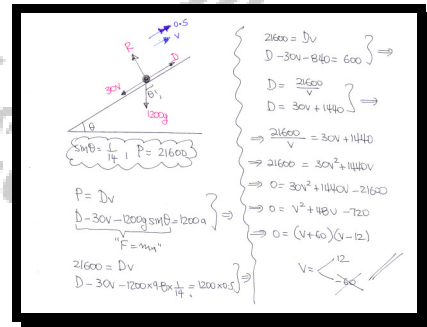 0.5
V
R
D
30V
θ
1200g
θ
sinθ = 1/14, P = 21600
P = Dv
D - 30v - 1200g sinθ = 1200a } ⇒
"F = ma"
21600 = Dv
D - 30v - 1200×9.8×1/14 = 1200×0.5 } ⇒
21600 = Dv
D - 30v - 840 = 600 } ⇒
D = 21600/v
D = 30v + 1440 } ⇒
⇒ 21600/v = 30v + 1440
⇒ 21600 = 30v² + 1440v
⇒ 0 = 30v² + 1440v - 21600
⇒ 0 = v² + 48v - 720
⇒ 0 = (v+60)(v-12)
V = < 12
-60